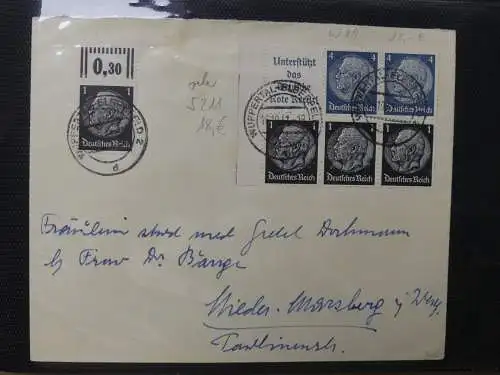 0,30
1
Deutsches Reich
WUPPERTAL-ELBERFELD 2
d
5211
18,-€
Unterstützt
das
Rote Kreuz
4 4
Deutsches Reich Deutsches Reich
WUPPERTAL-ELBERFELD
1 1 1
Deutsches Reich Deutsches Reich Deutsches Reich
Fräulein stud med Gretel Dochmann
b/ Frau Dr Bange
Nieder-Marsberg i/ Westf
Paulinenstr.